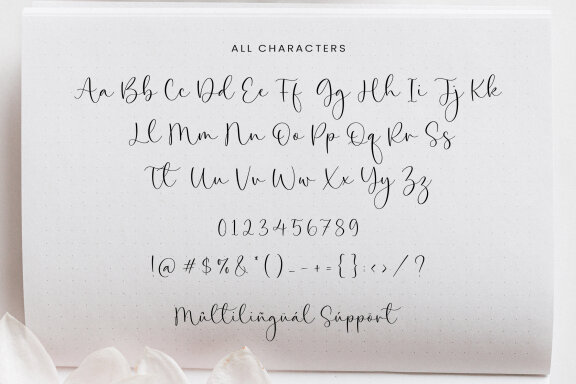 ALL CHARACTERS
Aa Bb Cc Dd Ee Ff Gg Hh Ii Jj Kk
Ll Mm Nn Oo Pp Qq Rr Ss
Tt Uu Vv Ww Xx Yy Zz
0123456789
!@#$%&*()_-+={}:<>/?
Múltilíñguál Súppórt